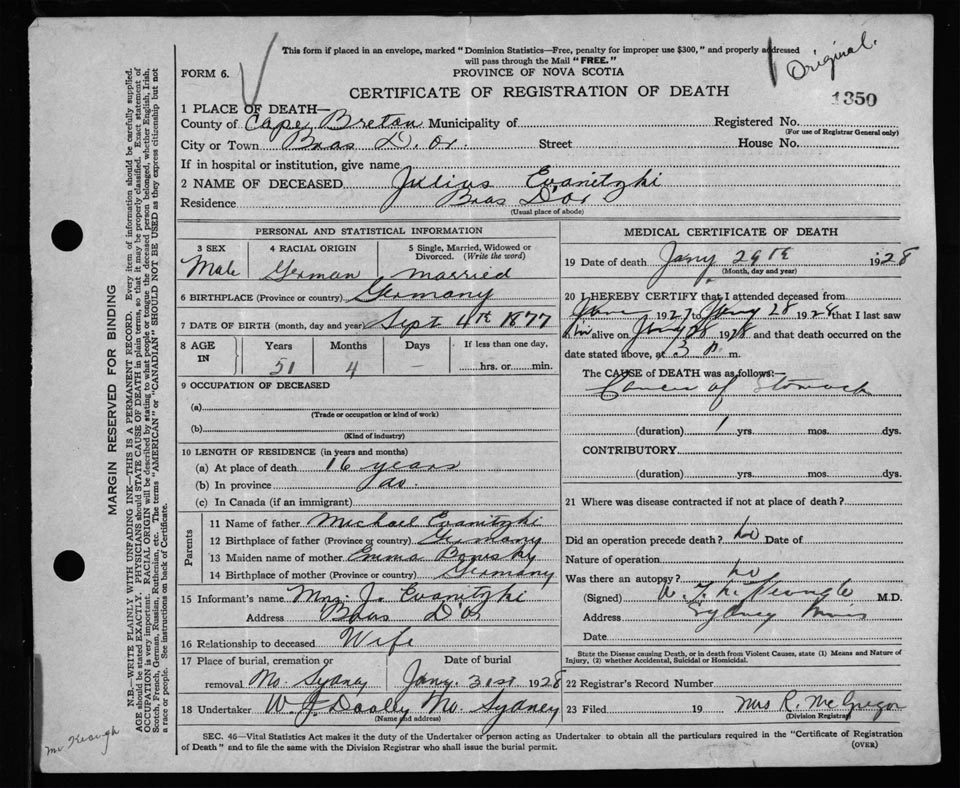 This form if placed in an envelope, marked "Dominion Statistics—Free, penalty for improper use $300," and properly addressed
will pass through the Mail "FREE."
Original.
FORM 6.
PROVINCE OF NOVA SCOTIA
CERTIFICATE OF REGISTRATION OF DEATH
1350
1 PLACE OF DEATH—
County of Cape Breton Municipality of Registered No.
(For use of Registrar General only)
City or Town Bras D. or. Street House No.
If in hospital or institution, give name
2 NAME OF DECEASED Julius Evanitzki
Residence Bras D'or
(Usual place of abode)
PERSONAL AND STATISTICAL INFORMATION
3 SEX 4 RACIAL ORIGIN 5 Single, Married, Widowed or
Divorced. (Write the word)
Male German married
6 BIRTHPLACE (Province or country) Germany
7 DATE OF BIRTH (month, day and year) Sept 4th 1877
8 AGE IN Years Months Days If less than one day,
51 4 — hrs. or min.
9 OCCUPATION OF DECEASED
(a)
(Trade or occupation or kind of work)
(b)
(Kind of industry)
10 LENGTH OF RESIDENCE (in years and months)
(a) At place of death 16 years
(b) In province do.
(c) In Canada (if an immigrant)
Parents
11 Name of father Michael Evanitzki
12 Birthplace of father (Province or country) Germany
13 Maiden name of mother Emma
14 Birthplace of mother (Province or country) Germany
15 Informant's name Mrs. J. Evanitzki
Address Bras D'or
16 Relationship to deceased Wife
17 Place of burial, cremation or Date of burial
removal No. Sydney Jany. 31st 1928
18 Undertaker W. J. Dooley No. Sydney
(Name and address)
MEDICAL CERTIFICATE OF DEATH
19 Date of death Jany 29th 1928
(Month, day and year)
20 I HEREBY CERTIFY that I attended deceased from
1927 to Jany 28 1928 that I last saw
him alive on Jany 28 1928 and that death occurred on the
date stated above, at 3 m.
The CAUSE of DEATH was as follows:—
Cancer of Stomach
(duration) 1 yrs. mos. dys.
CONTRIBUTORY
(duration) yrs. mos. dys.
21 Where was disease contracted if not at place of death?
Did an operation precede death? No Date of
Nature of operation
Was there an autopsy? No
(Signed) M.D.
Address Sydney Mines
Date
State the Disease causing Death, or in death from Violent Causes, state (1) Means and Nature of
Injury, (2) whether Accidental, Suicidal or Homicidal.
22 Registrar's Record Number
23 Filed 19 Mrs R. McGregor
(Division Registrar)
SEC. 46—Vital Statistics Act makes it the duty of the Undertaker or person acting as Undertaker to obtain all the particulars required in the "Certificate of Registration
of Death" and to file the same with the Division Registrar who shall issue the burial permit.
(OVER)
MARGIN RESERVED FOR BINDING
N.B.—WRITE PLAINLY WITH UNFADING INK—THIS IS A PERMANENT RECORD. Every item of information should be carefully supplied.
AGE should be stated EXACTLY. PHYSICIANS should STATE CAUSE OF DEATH in plain terms, so that it may be properly classified. Exact statement of
OCCUPATION is very important. RACIAL ORIGIN will be described by stating to what people or tongue the deceased person belonged, whether English, Irish,
Scotch, French, German, Russian, Ruthenian, etc. The terms "AMERICAN" or "CANADIAN" SHOULD NOT BE USED as they express citizenship but not
a race or people. See instructions on back of Certificate.
McKeough